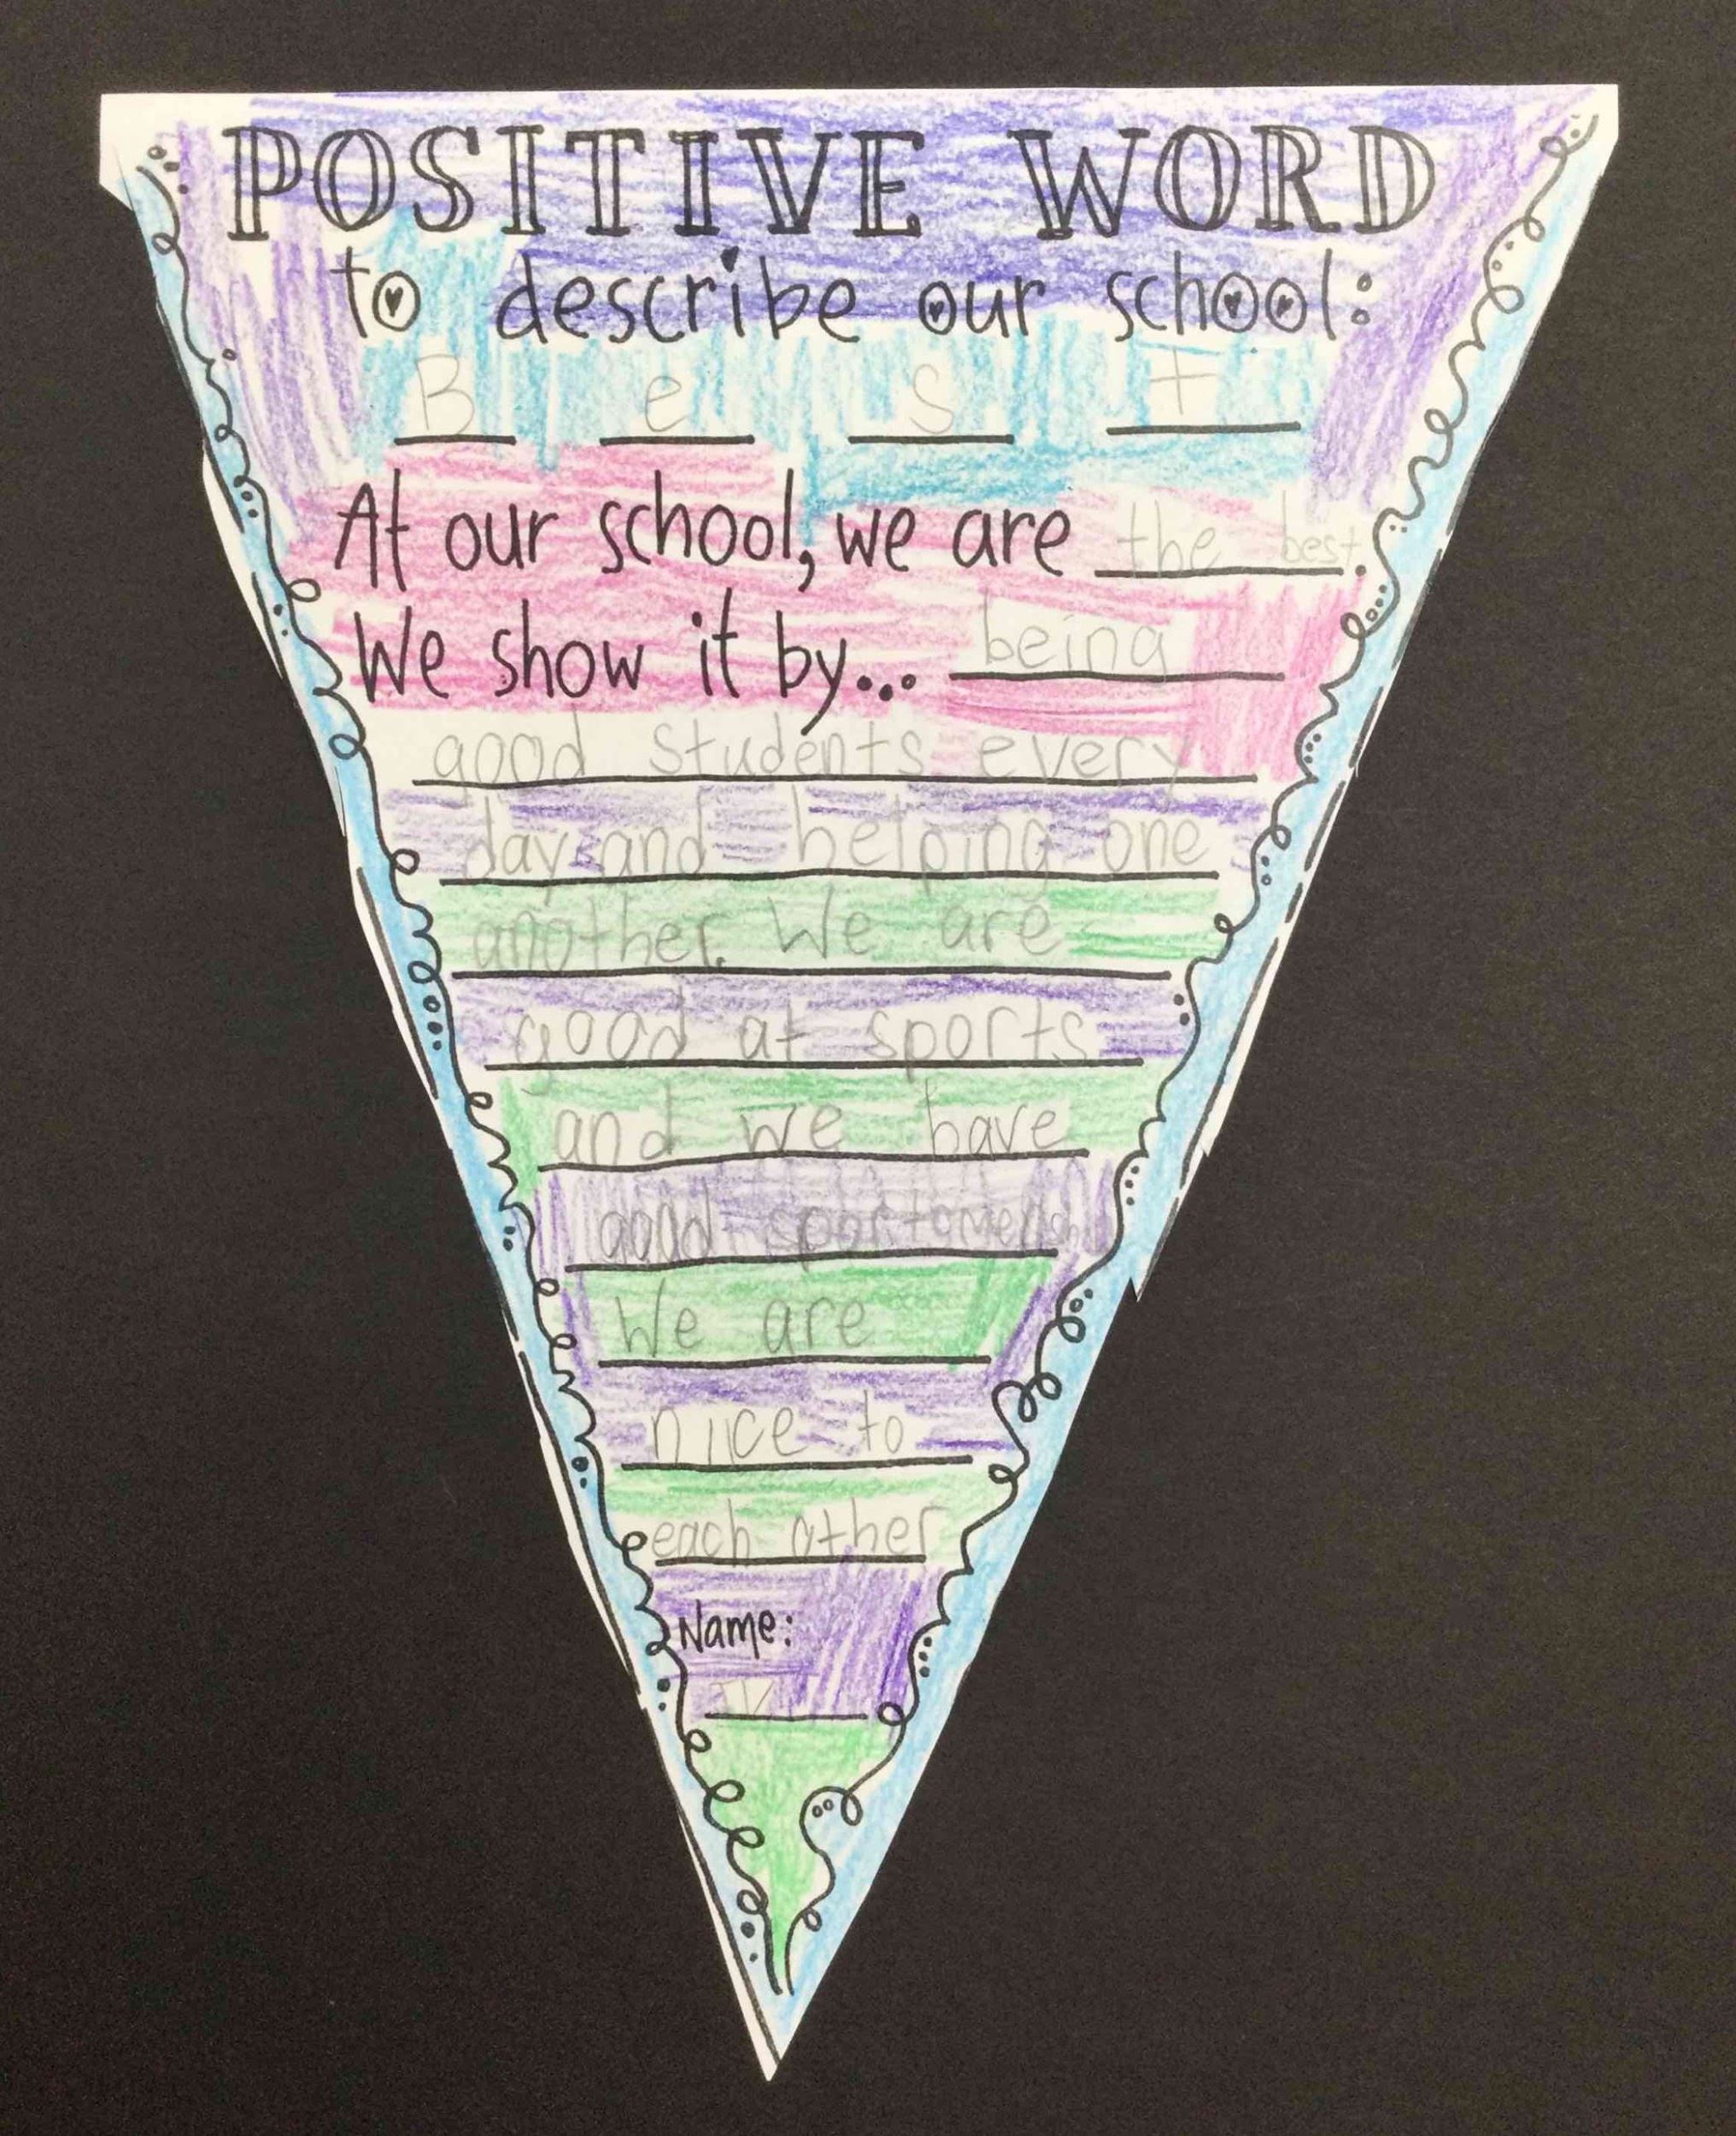 POSITIVE WORD
to describe our school:
B e s t
At our school, we are the best.
We show it by... being
good students every
day and helping one
another. We are
good at sports
and we have
good
We are
niice to
each other
Name: